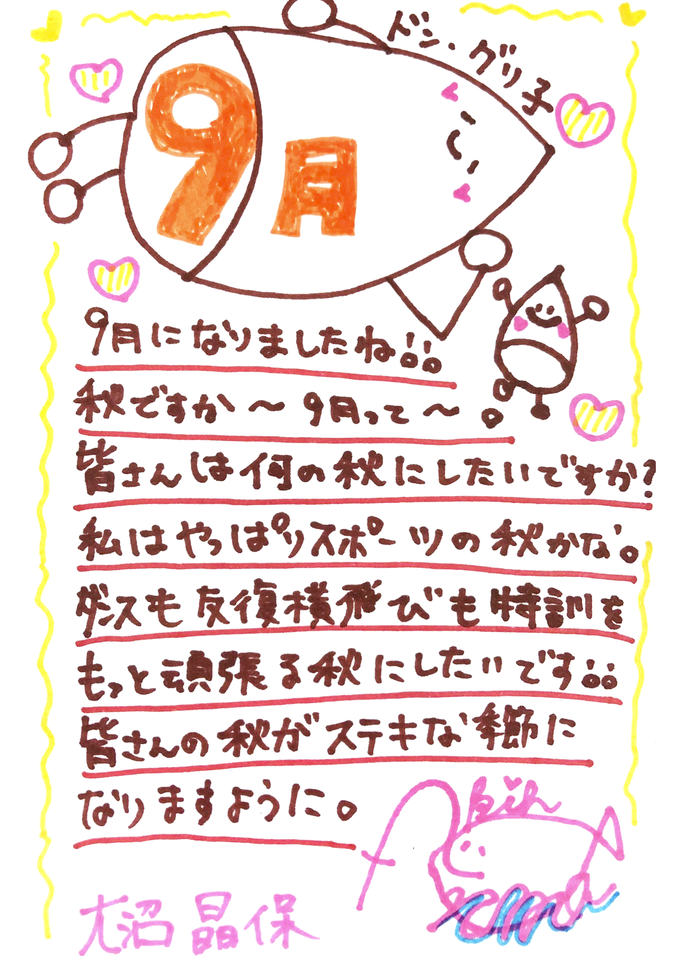 ドン・グリ子
9月
9月になりましたね
秋ですか〜9月って〜
皆さんは何の秋にしたいですか?
私はやっぱりスポーツの秋かな。
ダンスも反復横飛びも特訓を
もっと頑張る秋にしたいです
皆さんの秋がステキな季節に
なりますように。
大沼晶保